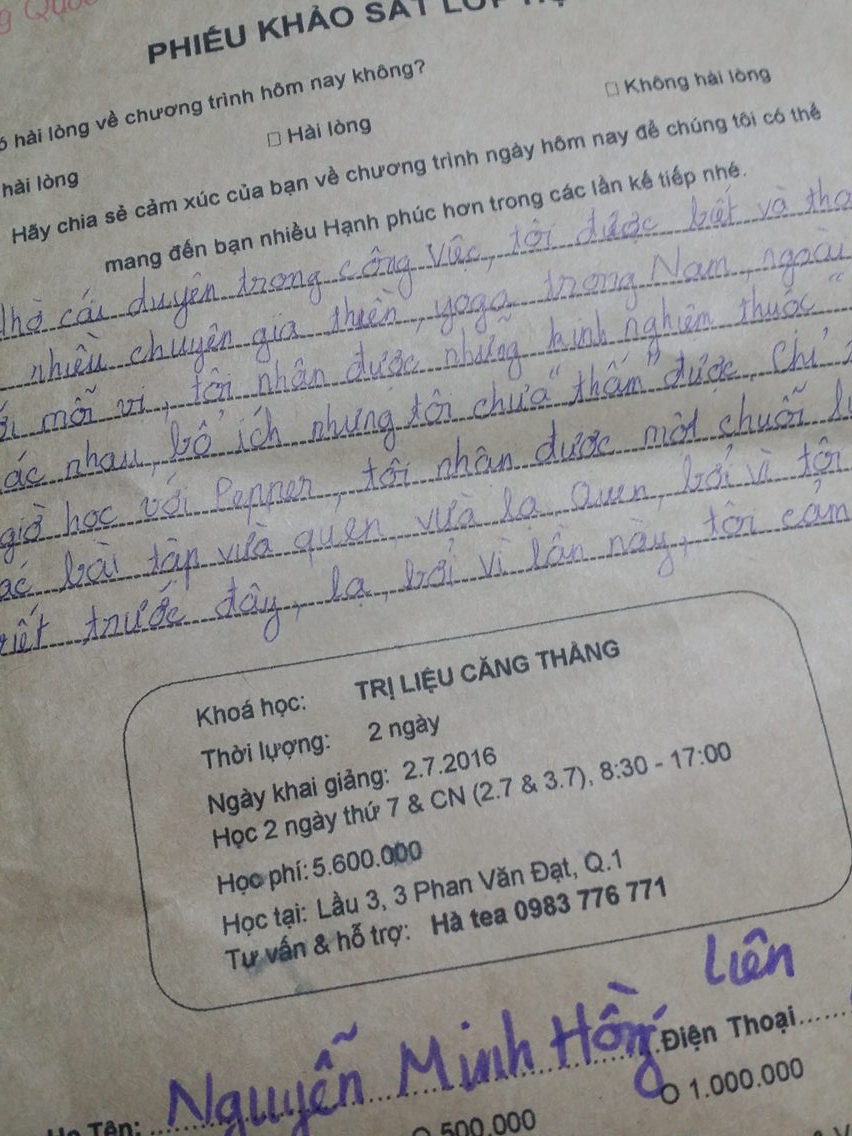 PHIẾU KHẢO SÁT LỚP
hài lòng về chương trình hôm nay không?
hài lòng □ Hài lòng □ Không hài lòng
Hãy chia sẻ cảm xúc của bạn về chương trình ngày hôm nay để chúng tôi có thể
mang đến bạn nhiều Hạnh phúc hơn trong các lần kế tiếp nhé.
Nhờ cái duyên trong công việc, tôi được biết và
nhiều chuyên gia thiền, yoga trong Nam, ngoài
mỗi vị, tôi nhận được những kinh nghiệm thuộc "
nhau, bổ ích nhưng tôi chưa "thấm" được, Chỉ
giờ học với Penner, tôi nhận được một chuỗi
bài tập vừa quen, vừa lạ. Quen, bởi vì tôi
trước đây, lạ, bởi vì lần này, tôi cảm
Khoá học: TRỊ LIỆU CĂNG THẲNG
Thời lượng: 2 ngày
Ngày khai giảng: 2.7.2016
Học 2 ngày thứ 7 & CN (2.7 & 3.7), 8:30 - 17:00
Học phí: 5.600.000
Học tại: Lầu 3, 3 Phan Văn Đạt, Q.1
Tư vấn & hỗ trợ: Hà tea 0983 776 771
Liên
Tên: Nguyễn Minh Hồng Điện Thoại
500.000 O 1.000.000